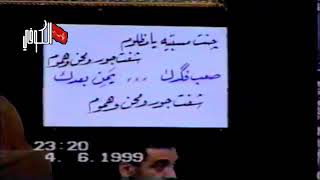 الكوفي
چنت مستبيه يا مظلوم
شفت جور ومحن وهموم
صعب فگدك ... يمن بعدك
شفت جور ومحن وهموم
23:20
4. 6.1999